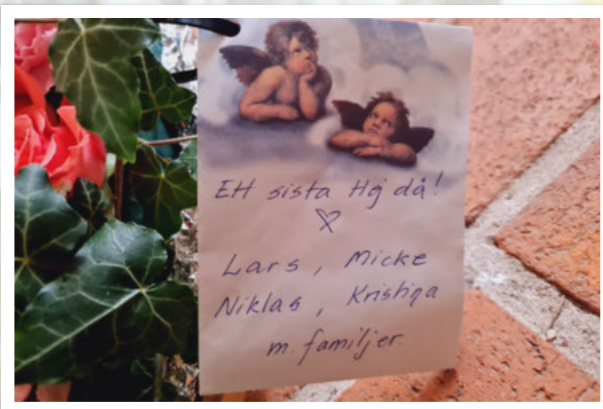 Ett sista Hej då!
♡
Lars, Micke
Niklas, Kristina
m. familjer.